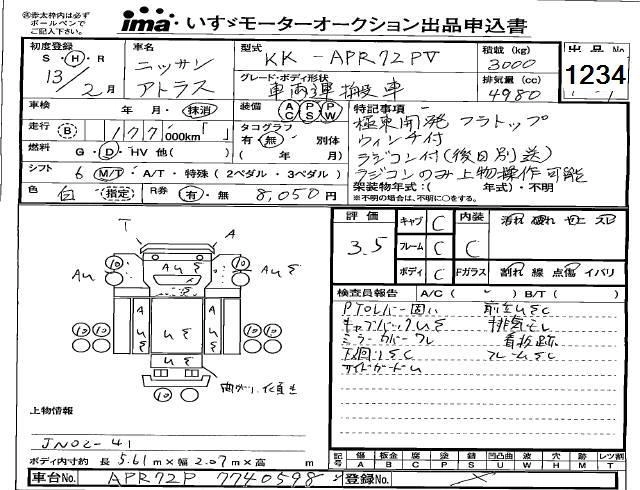 ※赤太枠内は必ず
ボールペンで
ご記入下さい。
ima いすゞモーターオークション出品申込書
初度登録 S・H・R 13/2月
車名 ニッサン アトラス
型式 KK-APR72PV
積載(kg) 3000
出品No 1234
グレード・ボディ形状 車両運搬車
排気量(cc) 4980
車検 年・月・抹消
装備 AC PS PW
特記事項
極東開発 フラトップ
ウィンチ付
ラジコン付(後日別送)
ラジコンのみ上物操作可能
走行 B 177,000km「 」
タコグラフ 有・無 別体 ( 年 月)
燃料 G・D・HV 他( )
シフト 6 M/T・A/T・特殊(2ペダル・3ペダル)
架装物年式:( 年式)・不明
※不明の場合は、不明に○をする。
色 白 指定 R券 有・無 8,050円
評価 3.5
キャブ C 内装 C 汚れ 破れ ヤニ スレ
フレーム C
ボディ C Fガラス 割れ 線 点傷 イバリ
検査員報告 A/C( ) B/T( )
PTOレバー固い
排気モレ
看板跡
T A
10 10
AUS
10 10 10 10
10
上物情報
JN02-41
ボディ内寸約 長 5.61m×幅 2.07m×高 m
記号 傷 板金 腐 塗 錆 凹凸曲 波 穴 跡 レツ割
A B C P S U W H M T
車台No. APR72P 7740598
登録No.